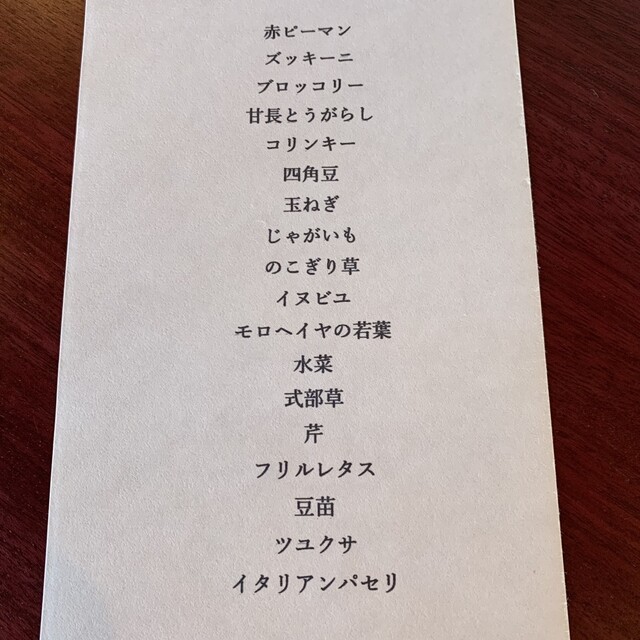 赤ピーマン
ズッキーニ
ブロッコリー
甘長とうがらし
コリンキー
四角豆
玉ねぎ
じゃがいも
のこぎり草
イヌビユ
モロヘイヤの若葉
水菜
式部草
芹
フリルレタス
豆苗
ツユクサ
イタリアンパセリ